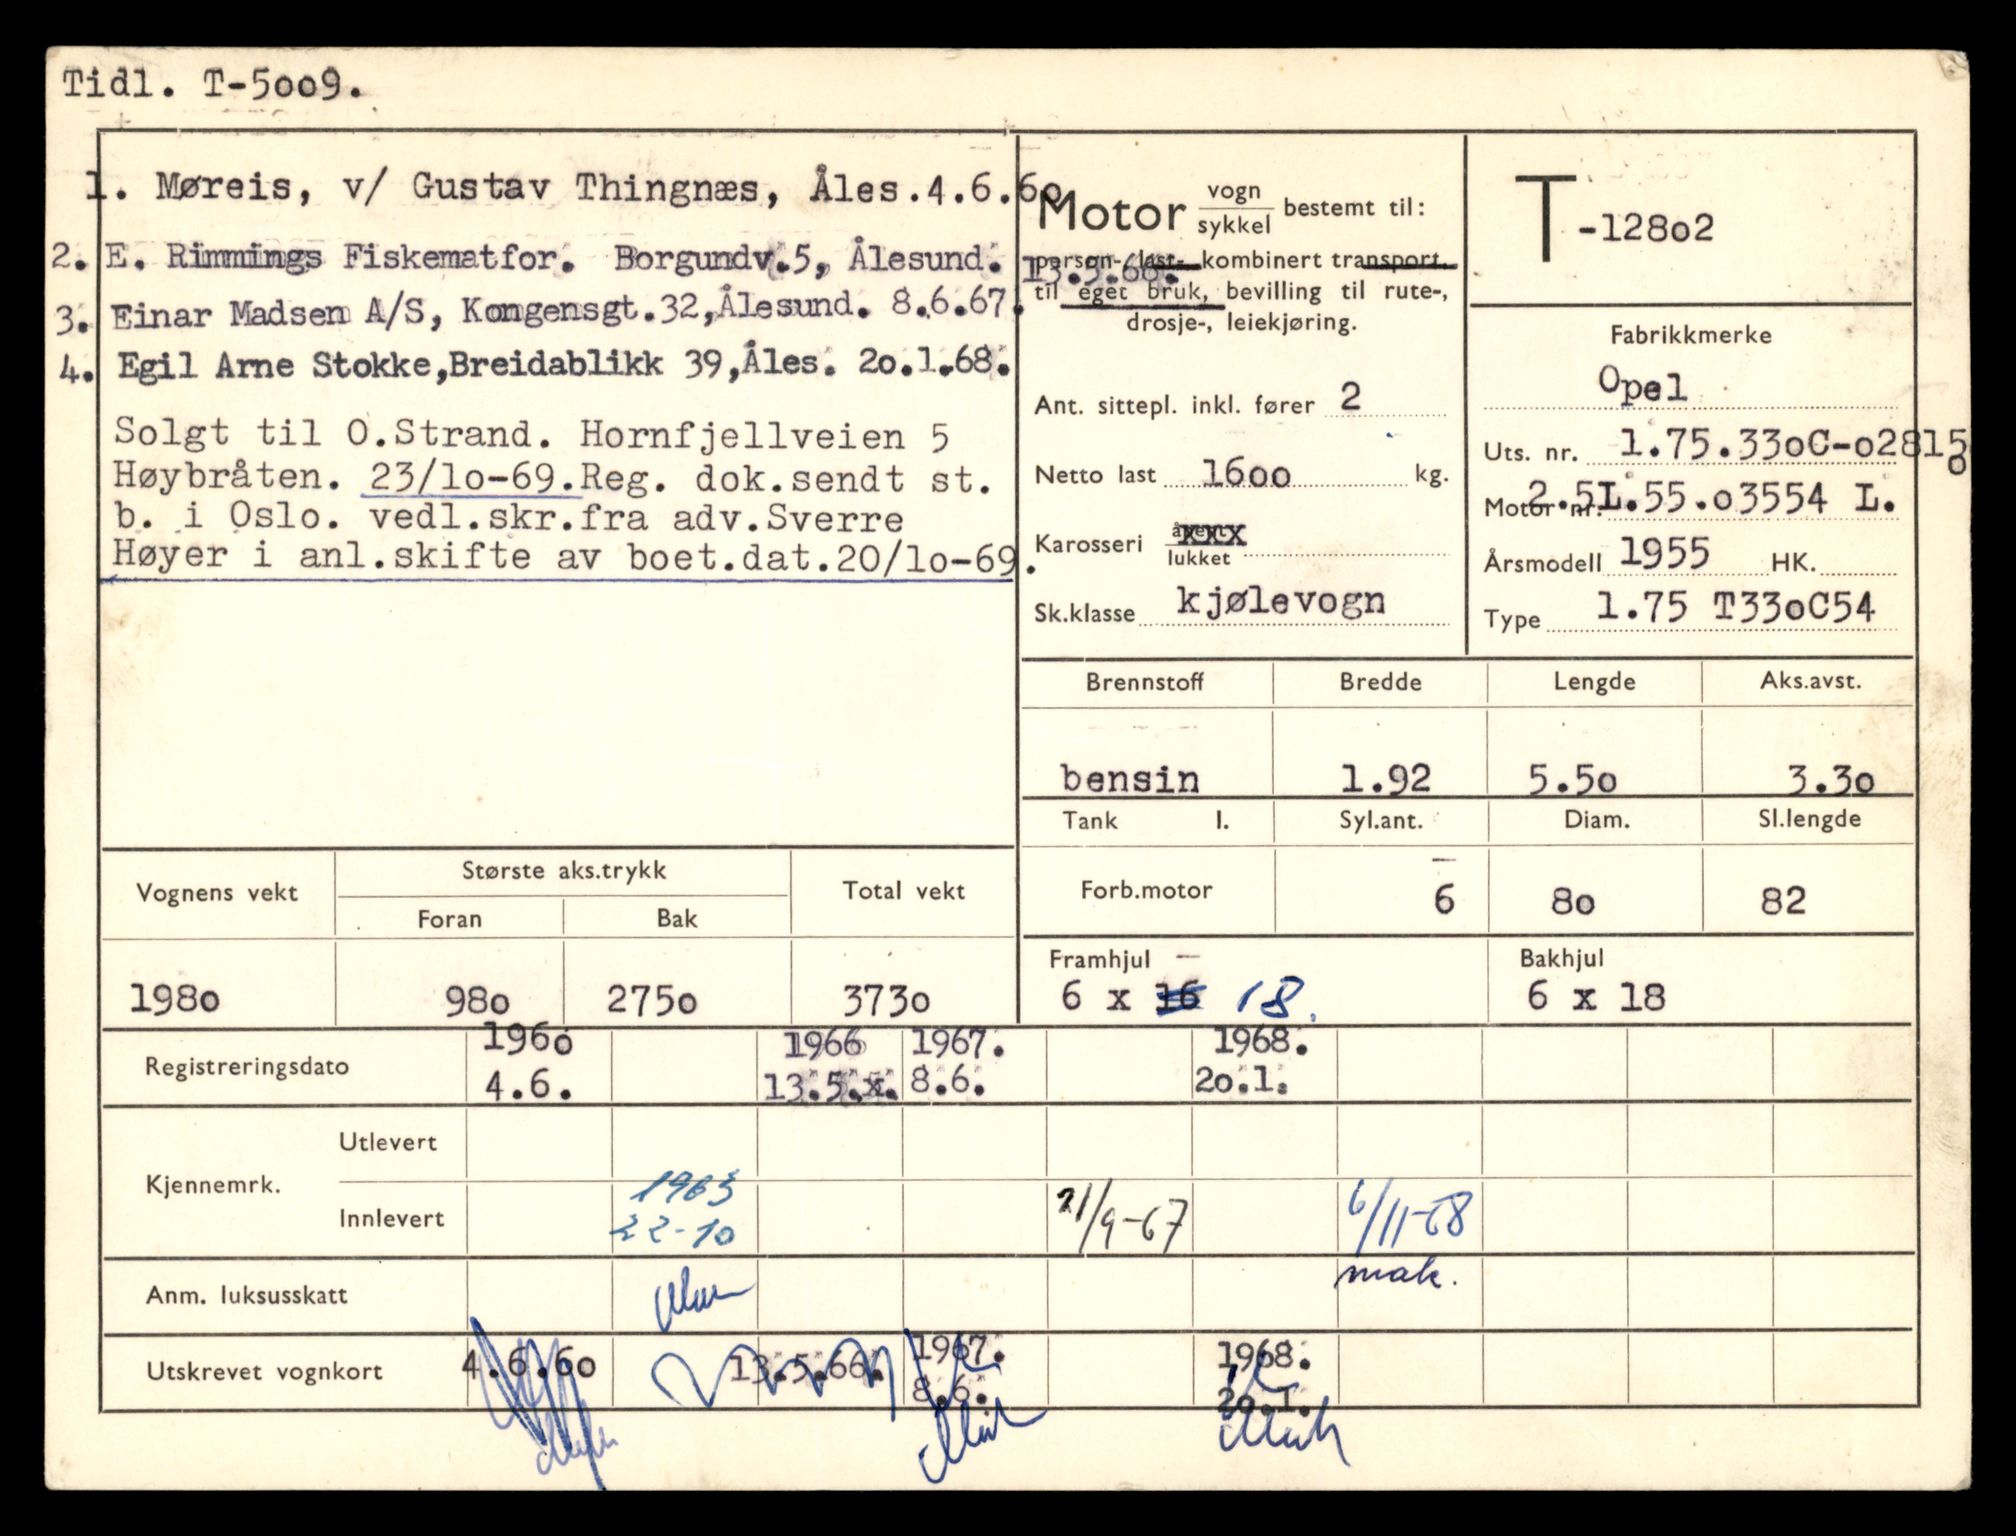 Tidl. T-5009.
1. Møreis, v/ Gustav Thingnæs, Åles.4.6.60
2. E. Rimmings Fiskematfor. Borgundv.5, Ålesund. 13.5.66.
3. Einar Madsen A/S, Kongensgt.32,Ålesund. 8.6.67.
4. Egil Arne Stokke,Breidablikk 39,Åles. 20.1.68.
Solgt til O.Strand. Hornfjellveien 5
Høybråten. 23/10-69.Reg. dok.sendt st.
b. i Oslo. vedl.skr.fra adv.Sverre
Høyer i anl.skifte av boet.dat.20/10-69.
Motor vogn/sykkel bestemt til:
person-, last-, kombinert transport,
til eget bruk, bevilling til rute-,
drosje-, leiekjøring.
Ant. sittepl. inkl. fører 2
Netto last 1600 kg.
Karosseri åpent/lukket xxx
Sk.klasse kjølevogn
T-12802
Fabrikkmerke
Opel
Uts. nr. 1.75.330C-028150
Motor nr. 2.5L.55.03554 L.
Årsmodell 1955 HK.
Type 1.75 T330C54
Brennstoff Bredde Lengde Aks.avst.
bensin 1.92 5.50 3.30
Tank l. Syl.ant. Diam. Sl.lengde
Forb.motor 6 80 82
Framhjul Bakhjul
6 x 16 18. 6 x 18
Vognens vekt Største aks.trykk Total vekt
Foran Bak
1980 980 2750 3730
Registreringsdato 1960 1966 1967. 1968.
4.6. 13.5.x. 8.6. 20.1.
Kjennemrk. Utlevert
Innlevert 1963 22-10 21/9-67 6/11-68
mak.
Anm. luksusskatt
Utskrevet vognkort 4.6.60 13.5.66. 1967. 1968.
8.6. 20.1.